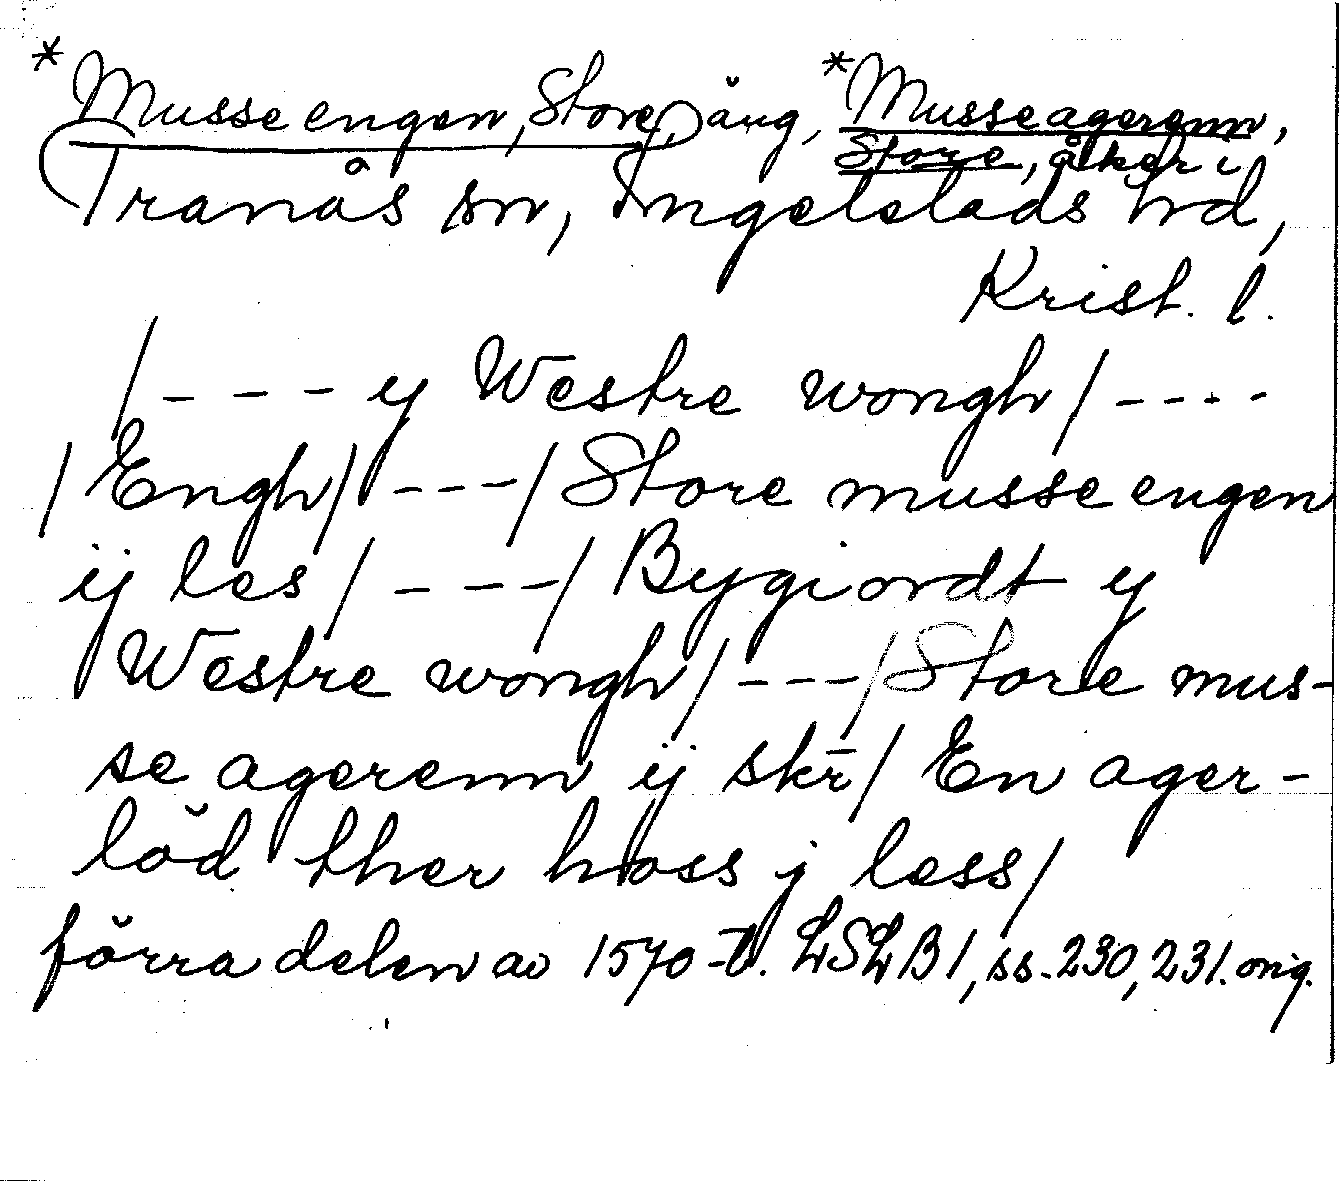 *Musse engen, Store, äng, *Musse agerenn,
Store, åker i
Tranås sn, Ingelstads hd,
Krist. l.
/- - - y Westre wongh/- - - -
/Engh/ - - -/Store musse engen
ij les/ - - -/Bygiordt y
Westre wongh/- - -/Store mus-
se agerenn ij skr̄/ En ager-
löd ther hoss j less/
förra delen av 1570-t. LSLB1, ss. 230, 231. orig.